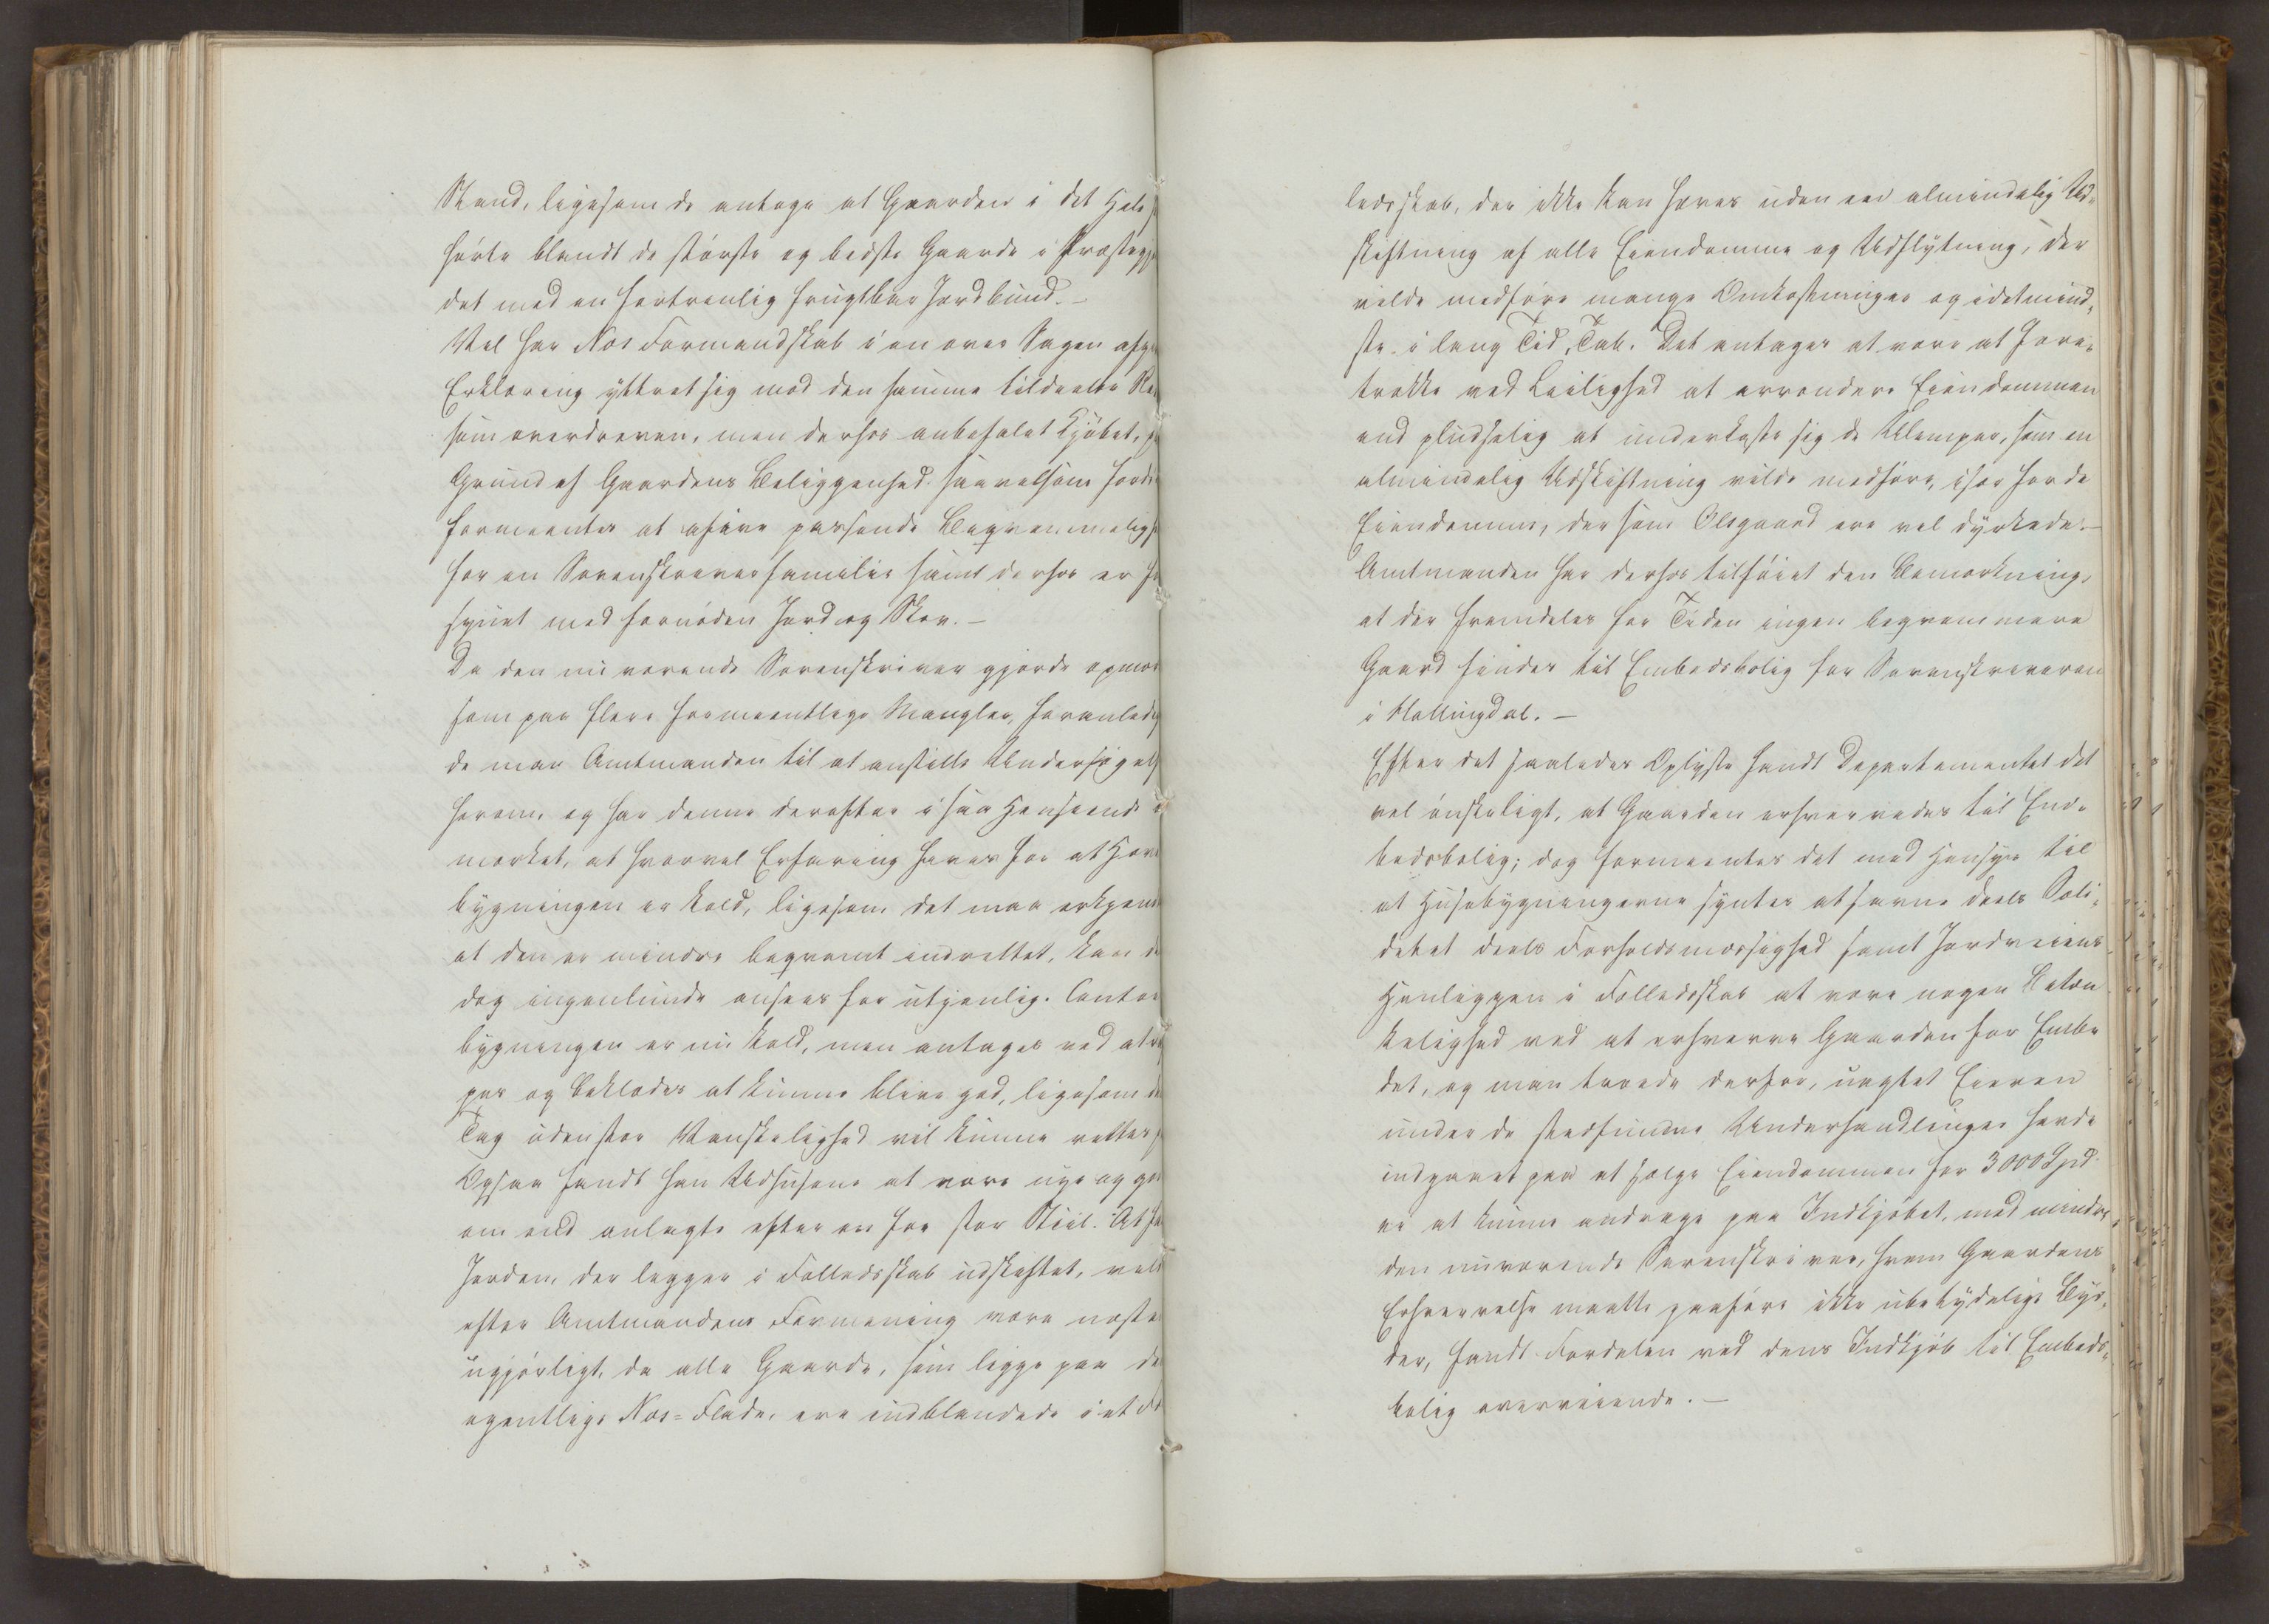 Stand, ligesom de antage at Gaarden i det Hele
hørte blandt de største og bedste Gaarde i Præstegj
det med en fortrinlig frugtbar Jordbund. –
Vel har Næs Formandskab i en over Sagen afgi
Erklæring yttret sig mod den samme tildeelte
som overdreven, men derhos anbefalet Kjøbet, p
Grund af Gaardens Beliggenhed saavelsom fordi
formeentes at afgive passende Beqvemmeligh
for en Sorenskriverfamilie samt derhos er
synet med fornøden Jord og Skov. –
Da den nu værende Sorenskriver gjorde opmær
som paa flere formeentlige Mangler, foranledig
de man Amtmanden til at anstille Undersøgels
herom, og har denne derefter i saa Henseende
mærket, at hvorvel Erfaring haves for at Hov
bygningen er kold, ligesom det maa erkjend
at den er mindre beqvemt indrettet, kan d
dog ingenlunde ansees for utjenlig. Contor
bygningen er nu kold, men antages ved at
pes og beklædes at kunne blive god, ligesom de
Tag uden stor Vanskelighed vil kunne rettes
Ogsaa fandt han Udhusene at være nye og go
om end anlagte efter en for stor Stiil. At
Jorden, der ligger i Fælledsskab udskiftet, vild
efter Amtmandens Formening være næsten
ugjørligt, da alle Gaarde, som ligge paa de
egentlige Næs=Flade, ere indblandede i et Fæ
ledsskab, der ikke kan hæves uden en almindelig Ud-
skiftning af alle Eiendomme og Udflytning, der
vilde medføre mange Omkostninger og idetmind-
ste i lang Tid, Tab. Det antages at være at fore-
trække ved Leilighed at arrondere Eiendommen
end pludselig at underkaste sig de Ulemper, som en
almindelig Udskiftning vilde medføre, især for de
Eiendomme, der som Olsgaard ere vel dyrkede. –
Amtmanden har derhos tilføiet den Bemærkning,
at der fremdeles for Tiden ingen beqvemmere
Gaard findes til Embedsbolig for Sorenskriveren
i Hallingdal. –
Efter det saaledes Oplyste fandt Departementet det
vel ønskeligt, at Gaarden erhvervedes til Em-
bedsbolig; dog formeentes det med Hensyn til
at Husebygningerne syntes at savne deels Soli-
ditet deels Forholdsmæssighed samt Jordveiens
Henliggen i Fælledsskab at være nogen Betæn
kelighed ved at erhverve Gaarden for Embe
det, og man troede derfor, uagtet Eieren
under de stedfundne Underhandlinger havde
indgaaet paa at sælge Eiendommen for 3000 Spd.
ei at kunne andrage paa Indkjøbet, med mindre
den nuværende Sorenskriver, hvem Gaardens
Erhvervelse maatte paaføre ikke ubetydelige Byr-
der, fandt Fordelen ved dens Indkjøb til Embeds-
bolig overveiende. –